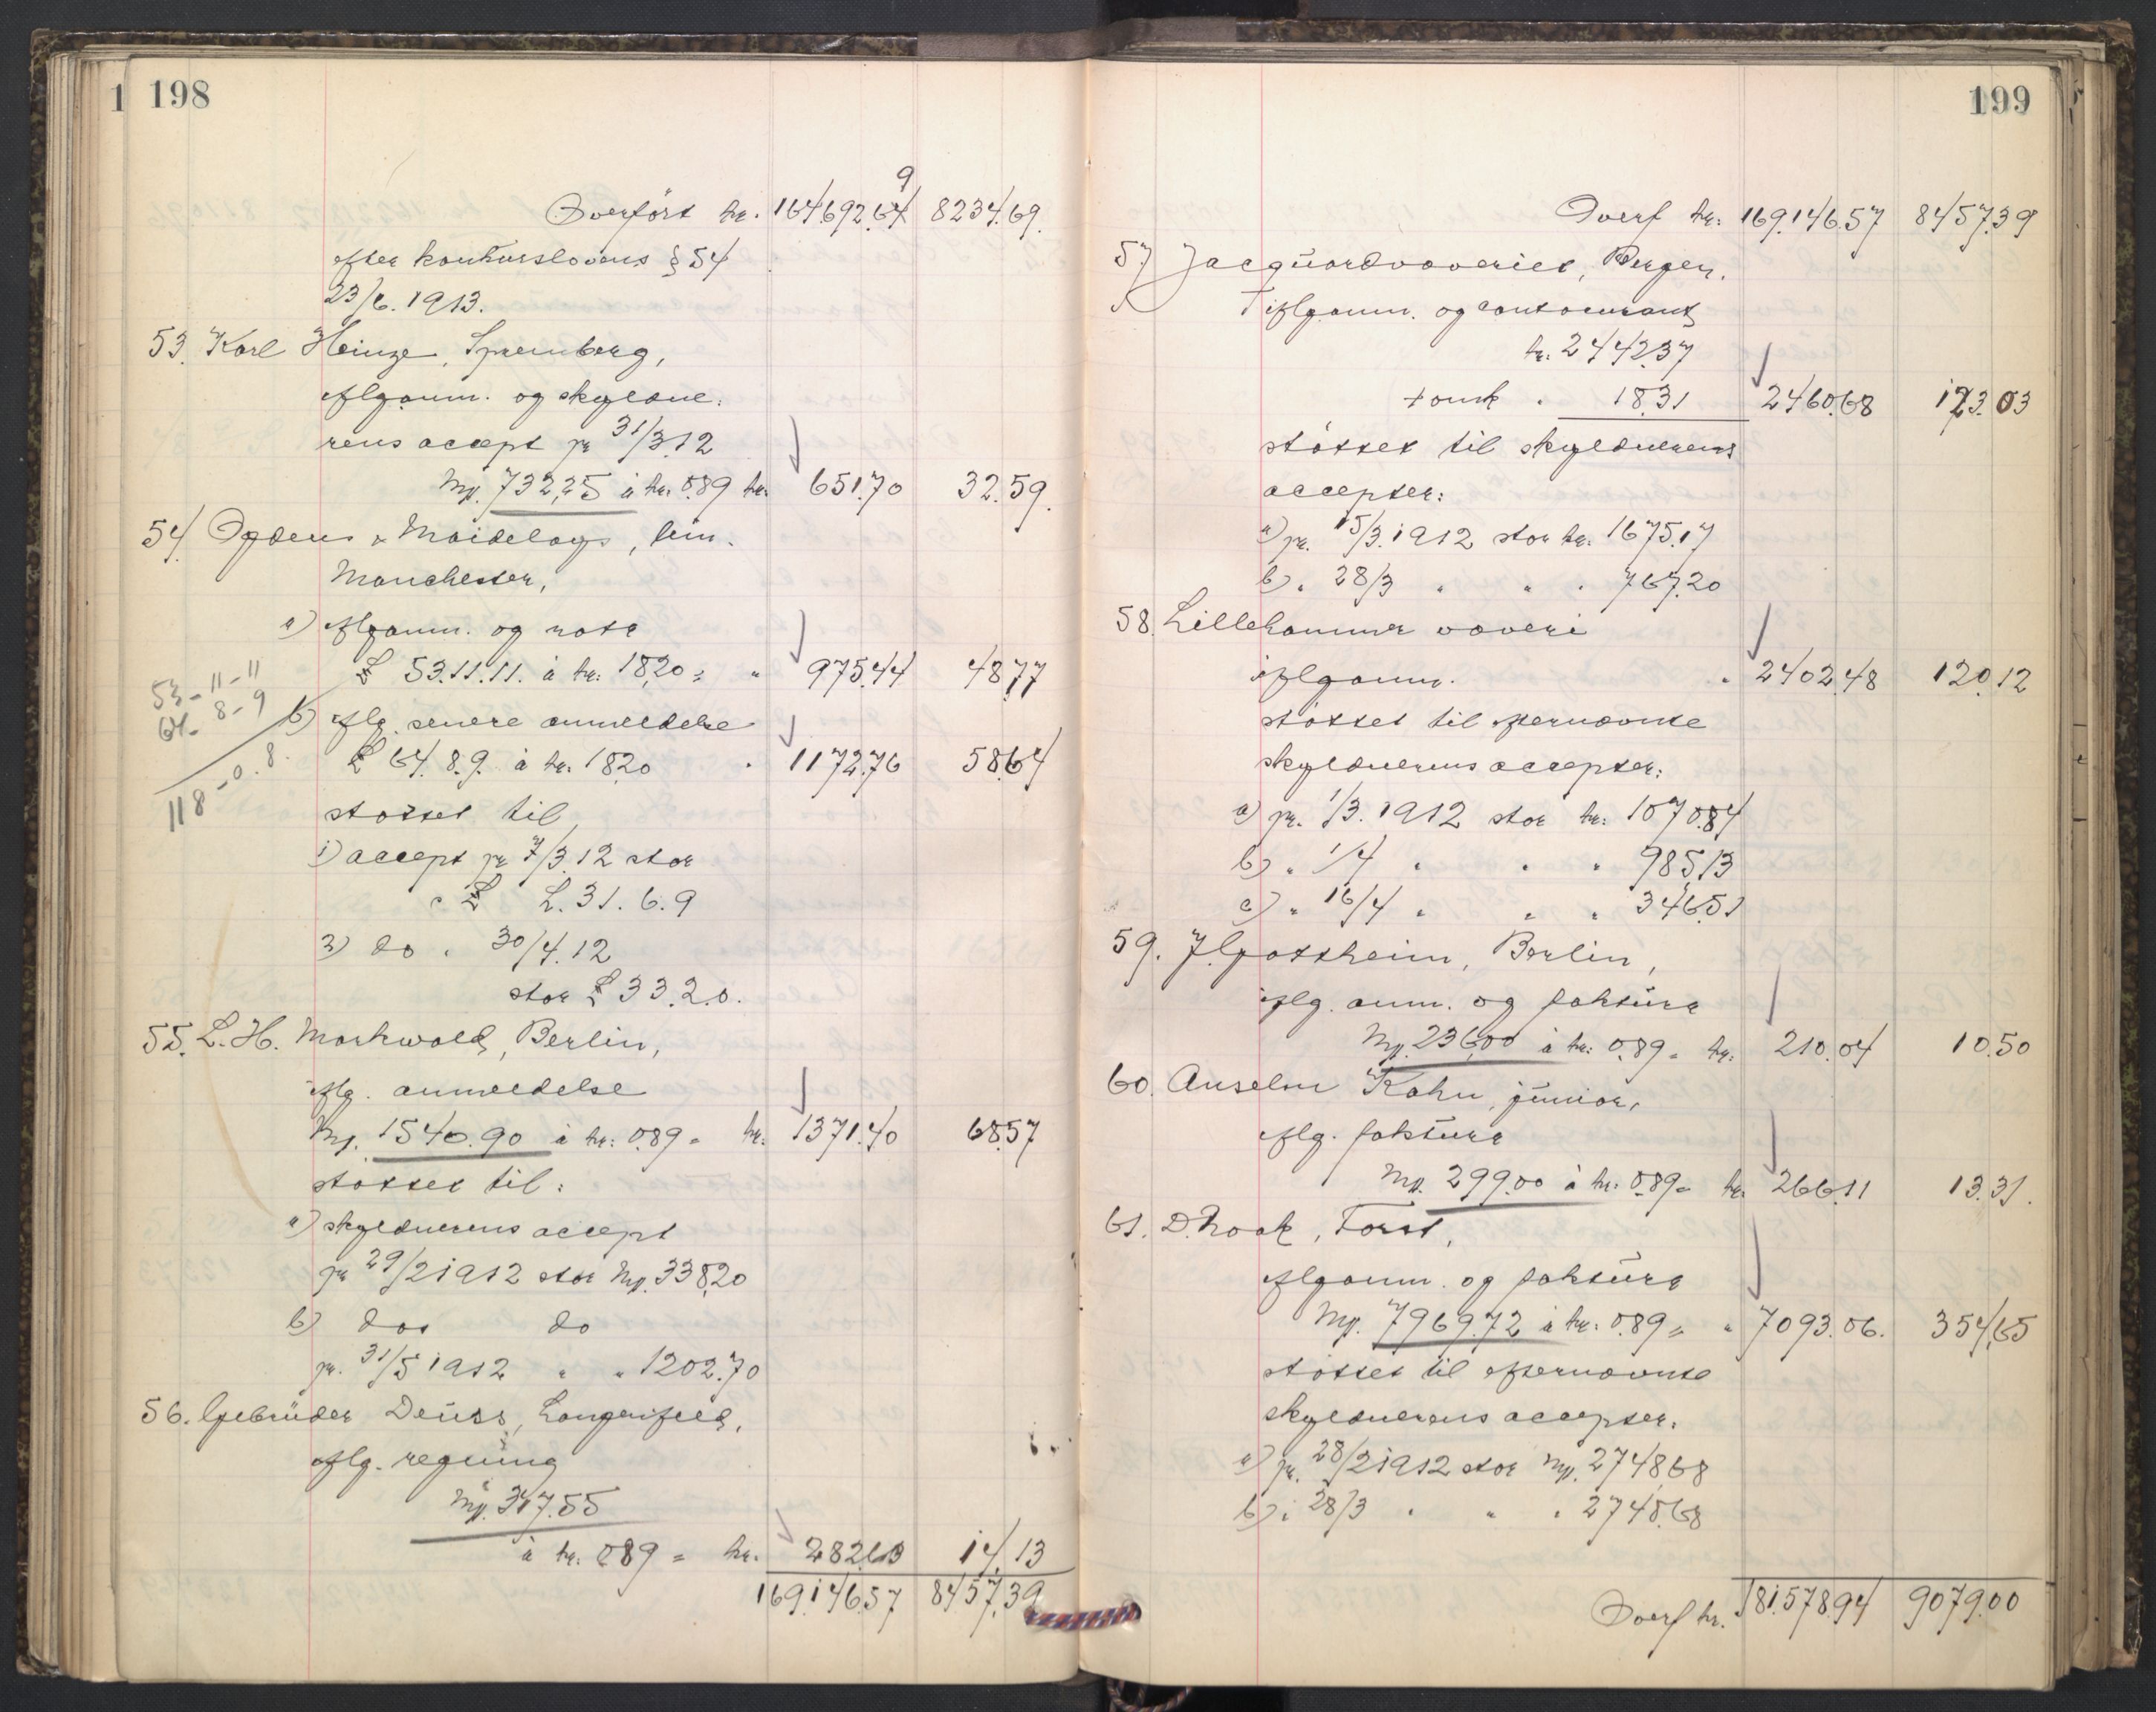 1 198
9
Overført kr. 164692.64 8234.69.
efter konkurslovens § 54
23/6. 1913.
53. Karl Heinze, Spremberg,
iflg anm. og skyldne-
rens accept pr 31/3.12
Mk. 732,25 à kr. 0.89 kr. 651.70 32.59.
54 Ogdens & Maidelags, lim.
Manchester,
a) iflg anm. og nota
£ 53.11.11. à kr. 18,20 = " 975.44 48,77
53-11-11
64- 8-9
118-0.8.
b) iflg. senere anmeldelse
£ 64. 8.9. à kr. 18.20 " 1172.76 58.64
støttet til
1) accept pr 7/3.12 stor
£ L. 31. 6. 9
2) do " 30/4.12
stor £ 33.2.0.
55. L. H. Markwald, Berlin,
iflg. anmeldelse
Mk. 1540.90 à kr. 0.89 = kr. 1371.40 68.57
støttet til:
a) skyldnerens accept
pr 29/2 1912 stor Mk. 338,20
b) dos do
pr. 31/5 1912 " " 1202.70
56. Gebrüder Deuss, Langerfeld,
iflg. regning
Mk. 317.55
à kr. 0.89 = kr. 282.63 14,13
169.146.57 8457,39
199
Overf kr. 169.146.57 8457.39
57 Jacquardvæveriet, Bergen,
iflg anm. og contocurant
kr. 2442.37
+ omk " 18.31 2460.68 123.03
støttet til skyldnerens
accepter:
a) pr. 15/3. 1912 stor kr. 1675.17
b) " 28/3 " " " 767.20
58. Lillehammer væveri
iflg anm. " 2402.48 120,12
støttet til efternævnte
skyldnerens accepter:
a) pr. 1/3. 1912 stor kr. 1070.84
b) " 1/4 " " " 985.13
c) " 16/4 " " " 346.51
59. J. Gottheim, Berlin,
iflg. anm. og faktura
Mk. 236,00 à kr. 0.89 = kr. 210.04 10.50
60. Anselm Kahn, junior,
iflg. faktura
Mk. 299.00 à kr. 0.89 = kr. 266.11 13.31.
61. D. Noak, Forst,
iflg anm. og faktura
Mk. 7969.72 à kr. 0.89 = " 7093.06. 354,65
støttet til efternævnte
skyldnerens accepter.
a) pr. 28/2 1912 stor Mk. 2748,68
b) " 28/3 " " " 2748.68
Overf kr. 181.578.94 9079.00